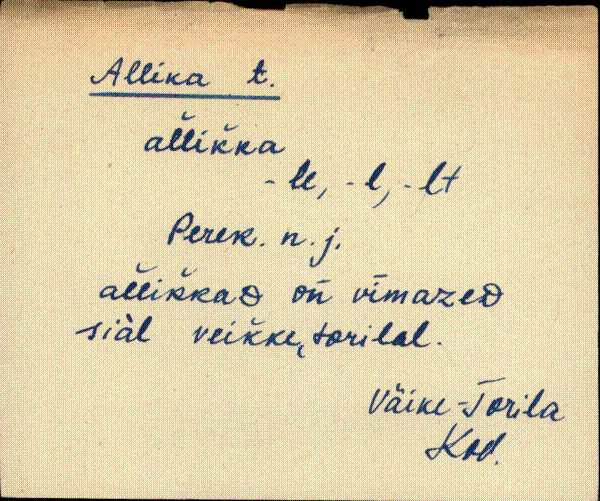 Allika t.
al̆lik̆ka
- le, - l, - lt
Perek. n. j.
al̆lik̆kaᴅ on̄ vīmazeᴅ
siàl veik̆ke, torilal.
Väike-Torila
Kod.